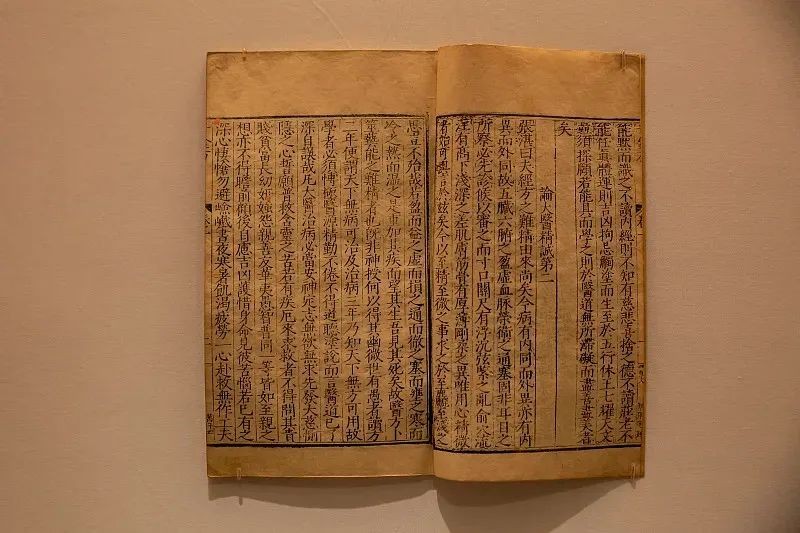 能默而識之不讀內經則不知有慈悲喜捨之德不讀莊老不
能任真體運則吉凶拘忌觸塗而生至於五行休王七耀天文
並須探賾若能具而學之則於醫道無所滯礙而盡善盡美者
矣
論大醫精誠第二
張湛曰夫經方之難精由來尚矣今病有內同而外異亦有內
異而外同故五臟六腑之盈虛血脉榮衛之通塞固非耳目之
所察必先診候以審之而寸口關尺有浮沉弦緊之亂俞穴流
注有高下淺深之差肌膚筋骨有厚薄剛柔之異唯用心精微
者始可與言於茲矣今以至精至微之事求之於至麤至淺之
思豈不殆哉若盈而益之虛而損之通而徹之塞而壅之寒而
冷之熱而溫之是重加其疾而望其生吾見其死矣故醫方卜
筮藝能之難精者也既非神授何以得其幽微世有愚者讀方
三年便謂天下無病可治及治病三年乃知天下無方可用故
學者必須博極醫源精勤不倦不得道聽塗說而言醫道已了
深自誤哉凡大醫治病必當安神定志無欲無求先發大慈惻
隱之心誓願普救含靈之苦若有疾厄來求救者不得問其貴
賤貧富長幼妍媸怨親善友華夷愚智普同一等皆如至親之
想亦不得瞻前顧後自慮吉凶護惜身命見彼苦惱若己有之
深心悽愴勿避嶮巇晝夜寒暑飢渴疲勞一心赴救無作工夫